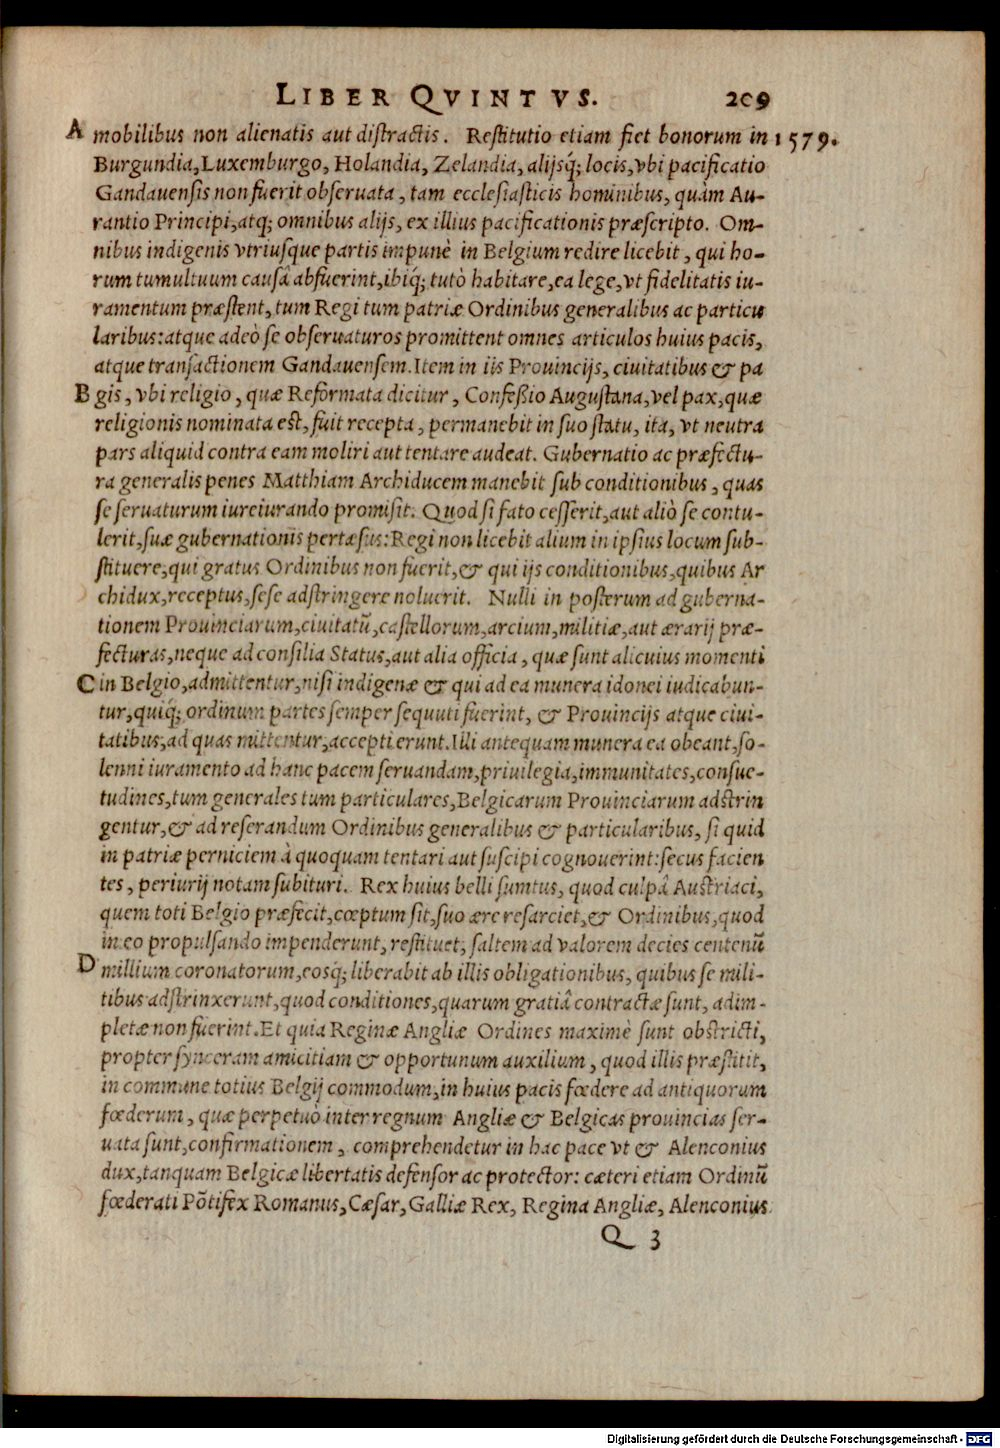 LIBER QVINTVS. 209
A mobilibus non alienatis aut distractis. Restitutio etiam fiet bonorum in 1579.
Burgundia, Luxemburgo, Holandia, Zelandia, alijsq́; locis, vbi pacificatio
Gandauensis non fuerit obseruata, tam ecclesiasticis hominibus, quàm Au-
rantio Principi, atq; omnibus alijs, ex illius pacificationis præscripto. Om-
nibus indigenis vtriusque partis impunè in Belgium redire licebit, qui ho-
rum tumultuum causâ abfuerint, ibiq́; tutò habitare, ea lege, vt fidelitatis iu-
ramentum præstent, tum Regi tum patriæ Ordinibus generalibus ac particu
laribus: atque adeò se obseruaturos promittent omnes articulos huius pacis,
atque transactionem Gandauensem. Item in iis Prouincijs, ciuitatibus & pa
B gis, vbi religio, quæ Reformata dicitur, Confeßio Augustana, vel pax, quæ
religionis nominata est, fuit recepta, permanebit in suo statu, ita, vt neutra
pars aliquid contra eam moliri aut tentare audeat. Gubernatio ac præfectu-
ra generalis penes Matthiam Archiducem manebit sub conditionibus, quas
se seruaturum iureiurando promisit. Quod si fato cesserit, aut aliò se contu-
lerit, suæ gubernationis pertæsus: Regi non licebit alium in ipsius locum sub-
stituere, qui gratus Ordinibus non fuerit, & qui ijs conditionibus, quibus Ar
chidux, receptus, sese adstringere noluerit. Nulli in posterum ad guberna-
tionem Prouinciarum, ciuitatũ, castellorum, arcium, militiæ, aut ærarij præ-
fecturas, neque ad consilia Status, aut alia officia, quæ sunt alicuius momenti
C in Belgio, admittentur, nisi indigenæ & qui ad ea munera idonei iudicabun-
tur, quiq́; ordinum partes semper sequuti fuerint, & Prouincijs atque ciui-
tatibus, ad quas mittentur, accepti erunt. Illi antequam munera ea obeant, so-
lenni iuramento ad hanc pacem seruandam, priuilegia, immunitates, consue-
tudines, tum generales tum particulares, Belgicarum Prouinciarum adstrin
gentur, & ad referandum Ordinibus generalibus & particularibus, si quid
in patriæ perniciem à quoquam tentari aut suscipi cognouerint: secus facien
tes, periurij notam subituri. Rex huius belli sumtus, quod culpâ Austriaci,
quem toti Belgio præfecit, cœptum sit, suo ære resarciet, & Ordinibus, quod
in eo propulsando impenderunt, restituet, saltem ad valorem decies centenũ
D millium coronatorum, eosq́; liberabit ab illis obligationibus, quibus se mili-
tibus adstrinxerunt, quod conditiones, quarum gratiâ contractæ sunt, adim-
pletæ non fuerint. Et quia Reginæ Angliæ Ordines maximè sunt obstricti,
propter synceram amicitiam & opportunum auxilium, quod illis præstitit,
in commune totius Belgij commodum, in huius pacis fœdere ad antiquorum
fœderum, quæ perpetuò inter regnum Angliæ & Belgicas prouincias ser-
uata sunt, confirmationem, comprehendetur in hac pace vt & Alenconius
dux, tanquam Belgicæ libertatis defensor ac protector: cæteri etiam Ordinũ
fœderati Põtifex Romanus, Cæsar, Galliæ Rex, Regina Angliæ, Alenconius
Q 3
Digitalisierung gefördert durch die Deutsche Forschungsgemeinschaft - DFG